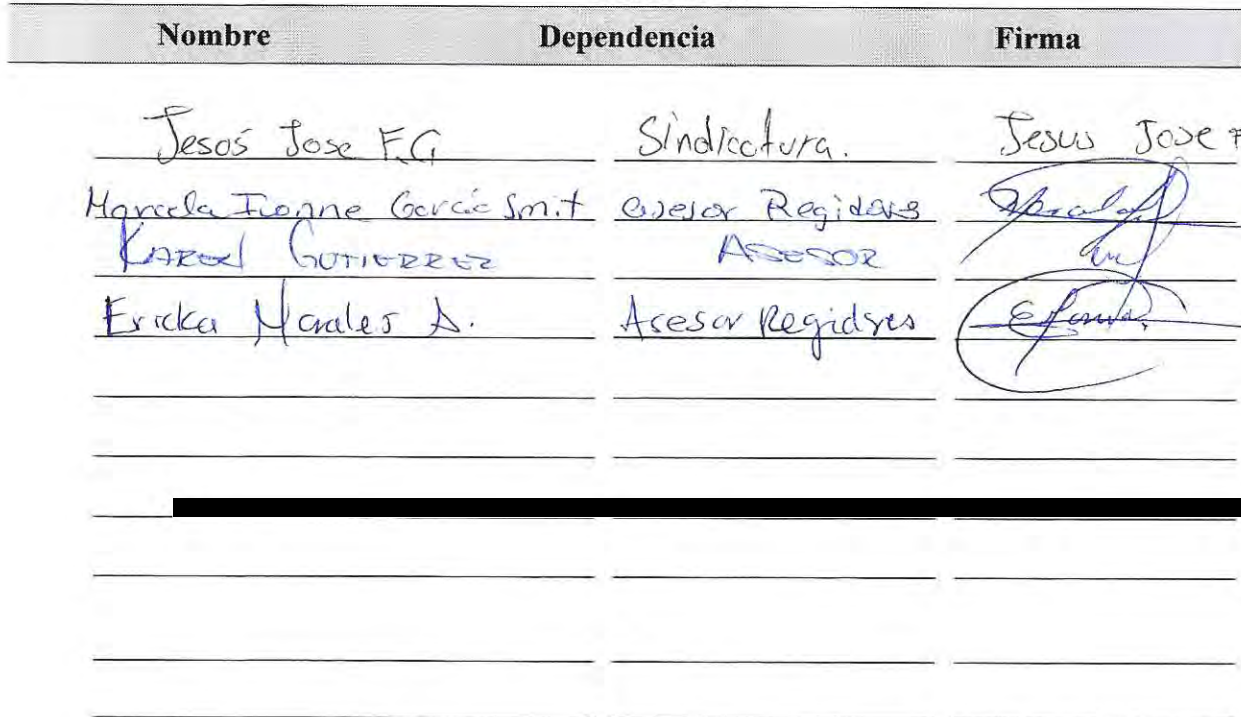 Nombre Dependencia Firma
Jesús Jose F.G Sindicatura. Jesus Jose F
Marcela Ivonne García Smit asesor Regidores
KAREN GUTIERREZ ASESOR
Ericka Morales A. Asesor Regidores